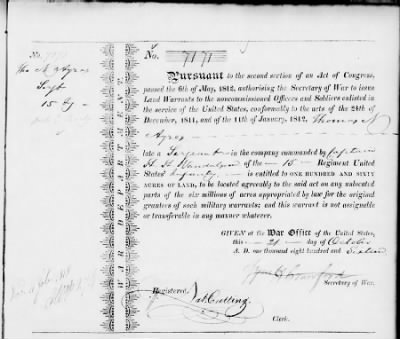 No. 7171
No. 7171
Pursuant to the second section of an Act of Congress,
passed the 6th of May, 1812, authorising the Secretary of War to issue
Land Warrants to the noncommissioned Officers and Soldiers enlisted in
the service of the United States, conformably to the acts of the 24th of
December, 1811, and of the 11th of January, 1812, Thomas N
Ayres
late a Sergeant in the company commanded by Captain
H. H. of the 15 Regiment United
States' Infantry is entitled to ONE HUNDRED AND SIXTY
ACRES OF LAND, to be located agreeably to the said act on any unlocated
parts of the six millions of acres appropriated by law for the original
grantees of such military warrants; and this warrant is not assignable
or transferable in any manner whatever.
GIVEN at the War Office of the United States,
this 21 day of October
A. D. one thousand eight hundred and Sixteen
Wm H Crawford
Secretary of War.
Registered,
Cutting
Clerk.
Tho N Ayres
Sergt
15 Rg
WAR DEPARTMENT.